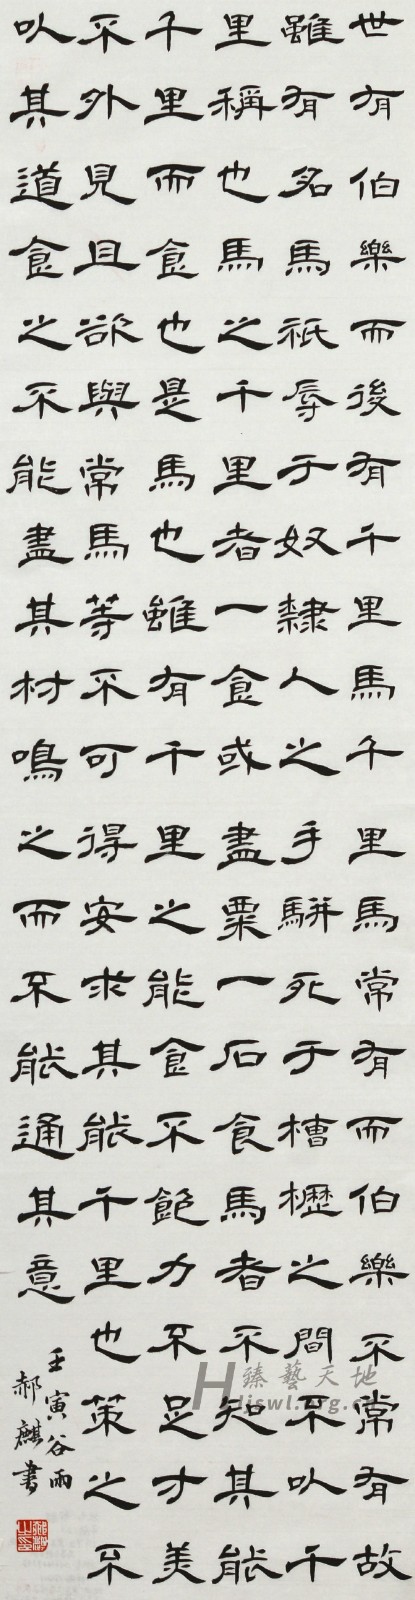 世有伯樂而後有千里馬千里馬常有而伯樂不常有故
雖有名馬祇辱于奴隸人之手駢死于槽櫪之間不以千
里稱也馬之千里者一食或盡粟一石食馬者不知其能
千里而食也是馬也雖有千里之能食不飽力不足才美
不外見且欲與常馬等不可得安求其能千里也策之不
以其道食之不能盡其材鳴之而不能通其意
壬寅谷雨
郝麒書
臻藝天地